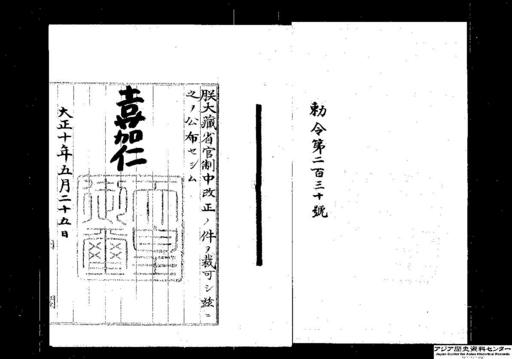 勅令第二百三十號
朕大藏省官制中改正ノ件ヲ裁可シ茲ニ
之ヲ公布セシム
嘉仁
天皇御璽
大正十年五月二十五日
アジア歴史資料センター
Japan Center for Asian Historical Records